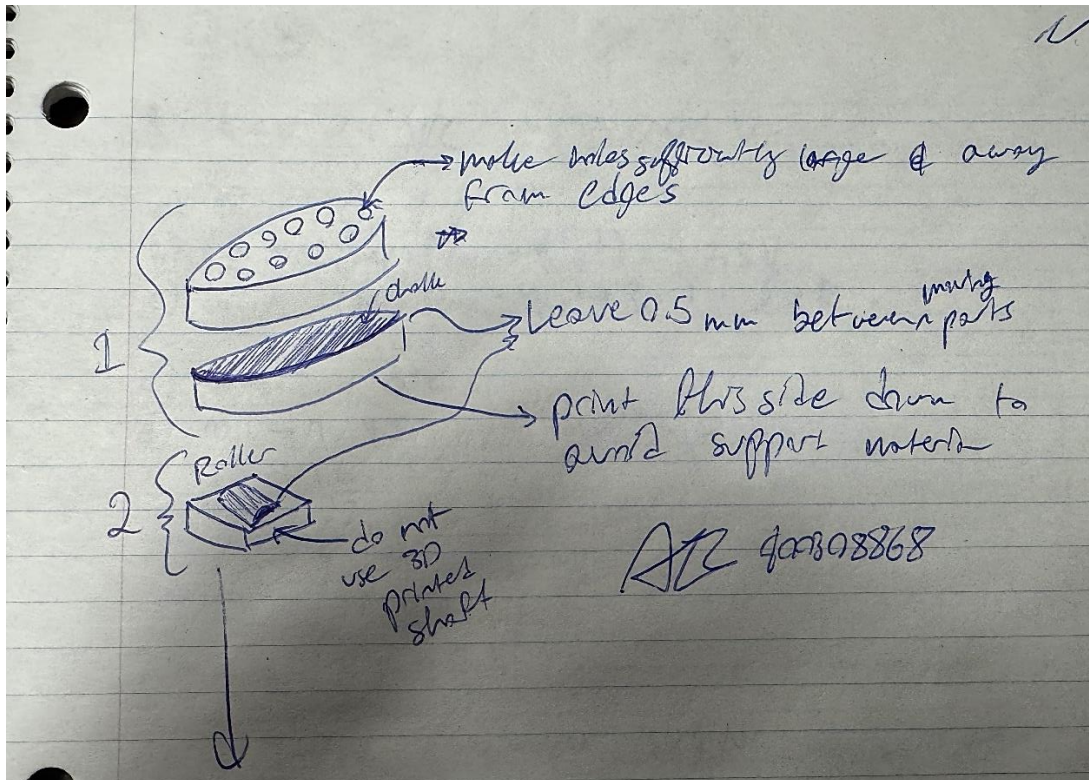 make holes sufficiently large & away
from edges
1
chalk
Leave 0.5 mm between mating parts
print this side down to
avoid support material
Roller
2
do not
use 3D
printed
shaft